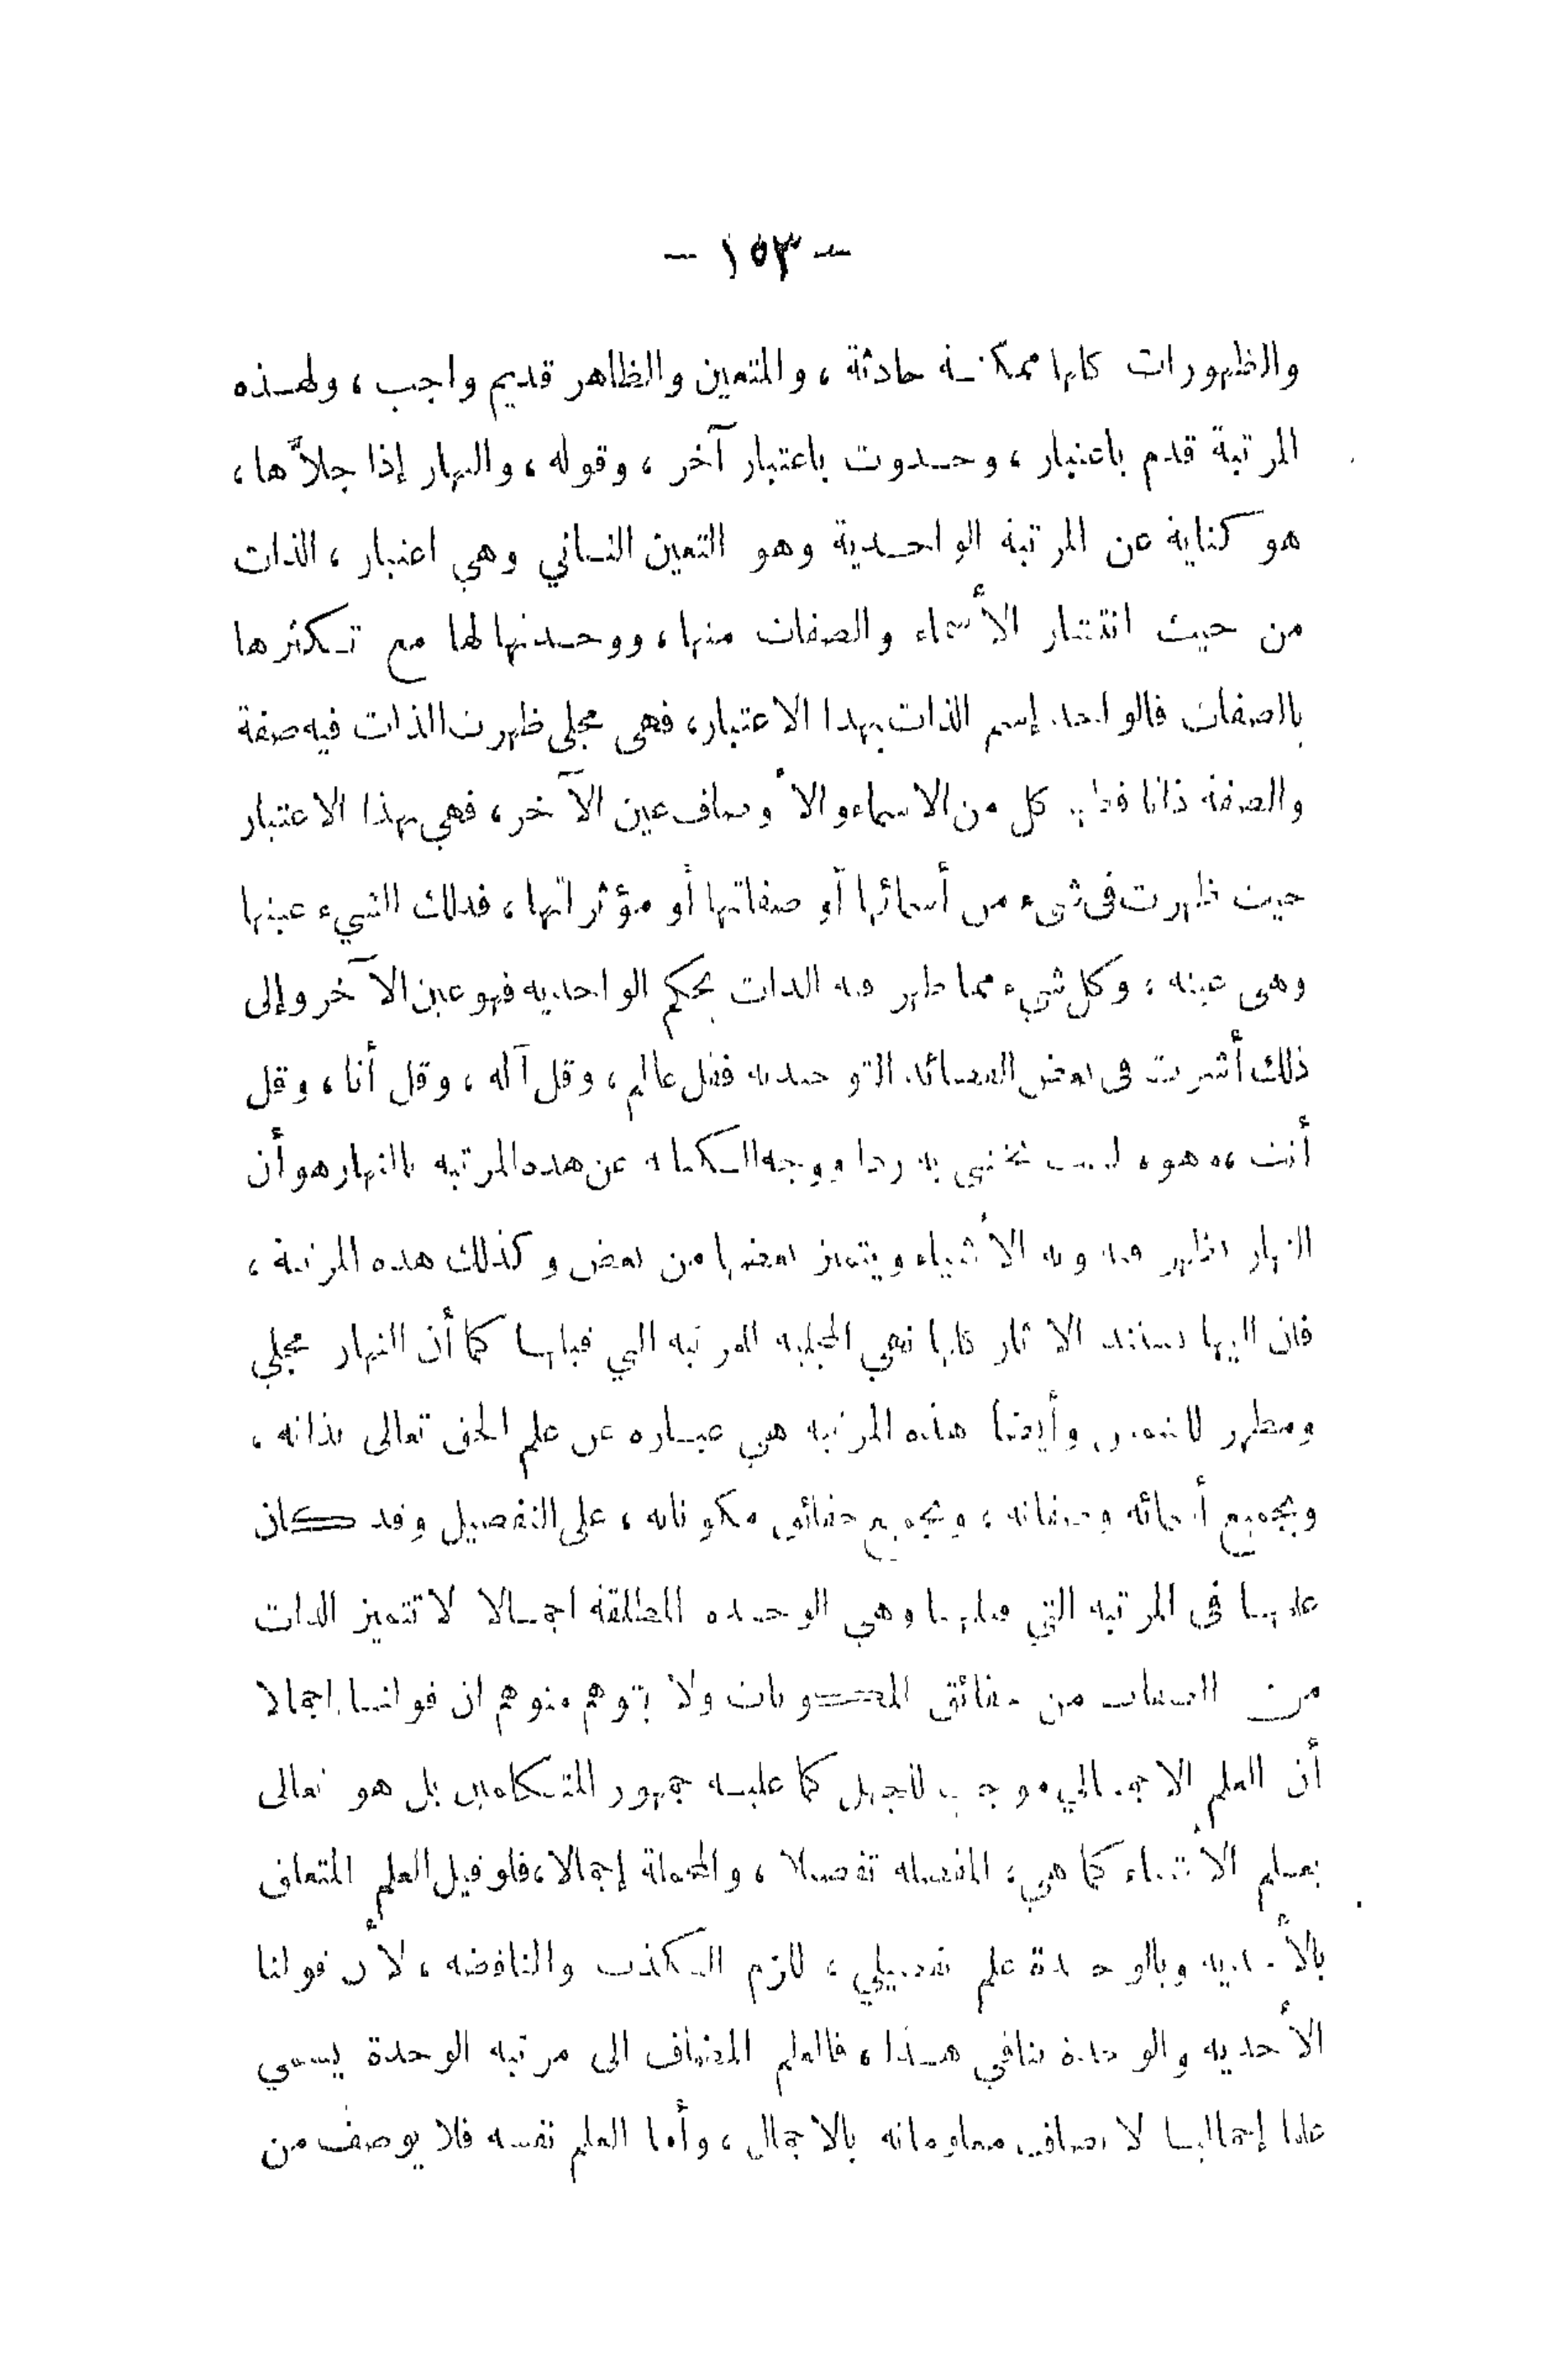 — ١٥٣ —
والظهورات كلها ممكنة حادثة ، والمتعين والظاهر قديم واجب ، ولهذه
المرتبة قدم باعتبار ، وحدوث باعتبار آخر ، وقوله ، والنهار إذا جلاّها ،
هو كناية عن المرتبة الواحدية وهو التعين الثاني وهي اعتبار ، الذات
من حيث انتشار الأسماء والصفات منها ، ووحدتها لها مع تكثرها
بالصفات فالواحد إسم الذات بهذا الاعتبار ، فهى مجلى ظهرت الذات فيه صفة
والصفة ذاتا فظهر كل من الاسماء والأوصاف عين الآخر ، فهي بهذا الاعتبار
حيث ظهرت فى شىء من أسمائها أو صفاتها أو مؤثراتها ، فذلك الشيء عينها
وهى عينه ، وكل شيء مما ظهر فيه الذات بحكم الواحدية فهو عين الآخر وإلى
ذلك أشرت فى بعض القصائد التوحيدية فقل عالم ، وقل آله ، وقل أنا ، وقل
أنت ، وهو ، لست تخشى به ردا ووجه الكناية عن هذه المرتبة بالنهار هو أن
النهار تظهر فيه وبه الأشياء ويتميز بعضها من بعض وكذلك هذه المرتبة ،
فان اليها تستند الاثار كلها فهي المجلية للمرتبة التي قبلها كما أن النهار مجلي
ومظهر للشمس وأيضا هذه المرتبة هي عبارة عن علم الحق تعالى بذاته ،
وبجميع أسمائه وصفاته ، وبجميع حقائق مكوناته ، على التفصيل وقد كان
علمها فى المرتبة التي قبلها وهي الوحدة المطلقة اجمالا لا تتميز الذات
من الصفات من حقائق المكونات ولا يتوهم متوهم ان قولنا اجمالا
أن العلم الاجمالي موجب للجهل كما عليه جمهور المتكلمين بل هو تعالى
يعلم الأشياء كما هي ، المفصلة تفصيلا ، والمجملة إجمالا ، فلو قيل العلم المتعلق
بالأحدية وبالوحدة علم تفصيلي ، للزم الكذب والمناقضة ، لأن قولنا
الأحدية والوحدة ينافي هذا ، فالعلم المضاف الى مرتبة الوحدة يسمي
علما إجماليا لاتصاف معلوماته بالاجمال ، وأما العلم نفسه فلا يوصف من